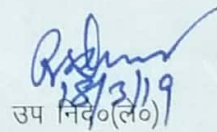 18/3/19
उप निदे०(ले०)